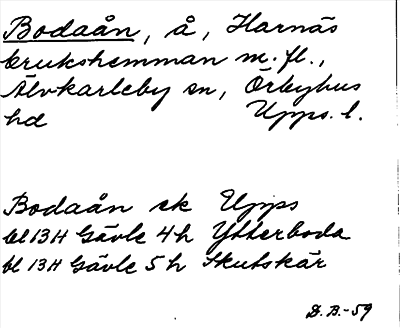 Bodaån, å, Harnäs
brukshemman m. fl.,
Älvkarleby sn, Örbyhus
hd Upps. l.
Bodaån ek Upps
bl 13H Gävle 4h Ytterboda
bl 13H Gävle 5h Skutskär
D. B.-59